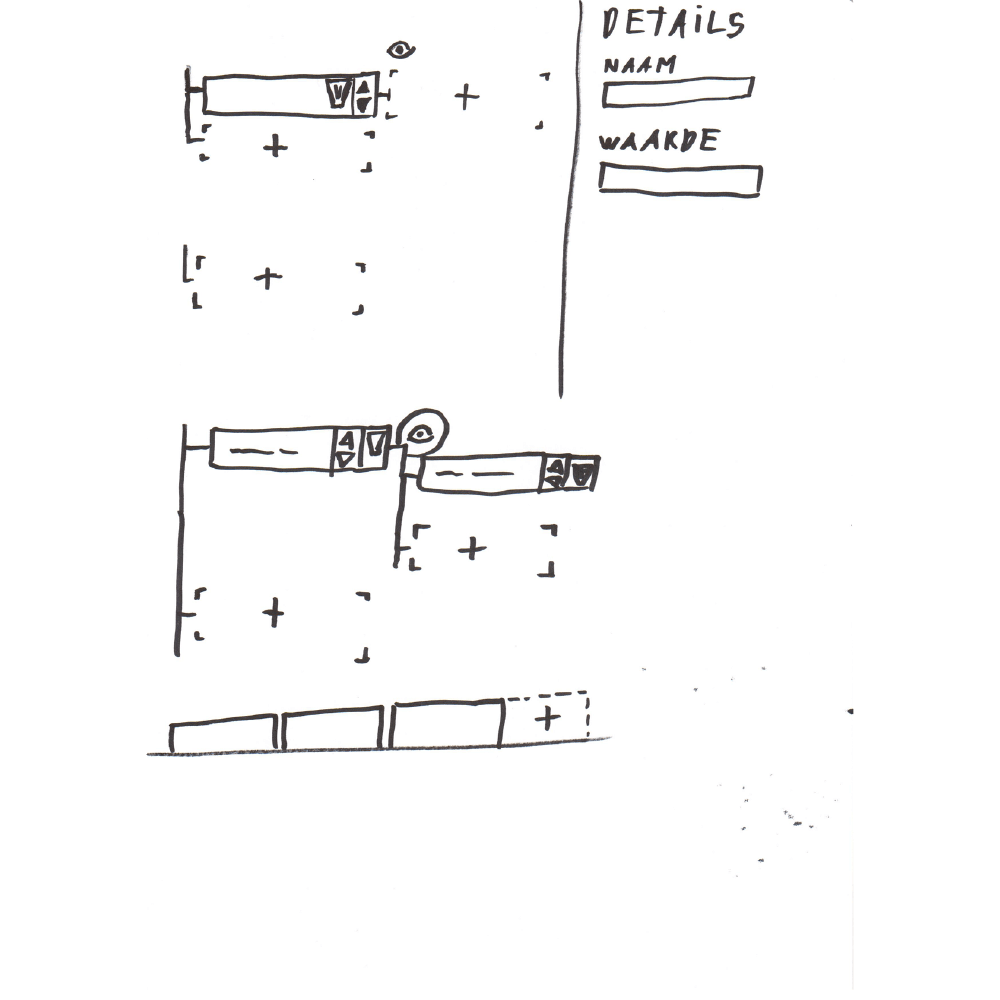 DETAILS
NAAM
WAARDE